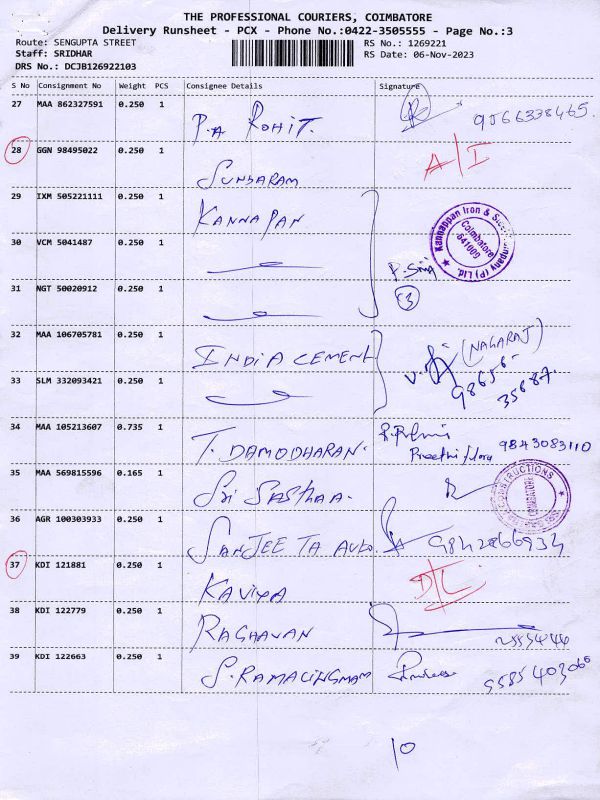 THE PROFESSIONAL COURIERS, COIMBATORE
Delivery Runsheet - PCX - Phone No.:0422-3505555 - Page No.:3
Route: SENGUPTA STREET RS No.: 1269221
Staff: SRIDHAR RS Date: 06-Nov-2023
DRS No.: DCJB126922103
S No Consignment No Weight PCS Consignee Details Signature
27 MAA 862327591 0.250 1 P.A ROHIT. 9566338465.
28 GGN 98495022 0.250 1 SUNDARAM A/I
29 IXM 505221111 0.250 1 KANNAPAN
Kannappan Iron & Steel Company (P) Ltd.
Coimbatore
641009
30 VCM 5041487 0.250 1
31 NGT 50020912 0.250 1 (3)
32 MAA 106705781 0.250 1 INDIA CEMENT (NAGARAJ)
98656-
35687.
33 SLM 332093421 0.250 1
34 MAA 105213607 0.735 1 T. DAMODHARAN. Preethi flora 9843083110
35 MAA 569815596 0.165 1 Sri SASTHAA.
CONSTRUCTIONS
COIMBATORE
36 AGR 100303933 0.250 1 SANJEETA AUTO. 9842866934
37 KDI 121881 0.250 1 KAVIYA D/L
38 KDI 122779 0.250 1 RAGHAVAN
39 KDI 122663 0.250 1 S. RAMALINGMAM
10